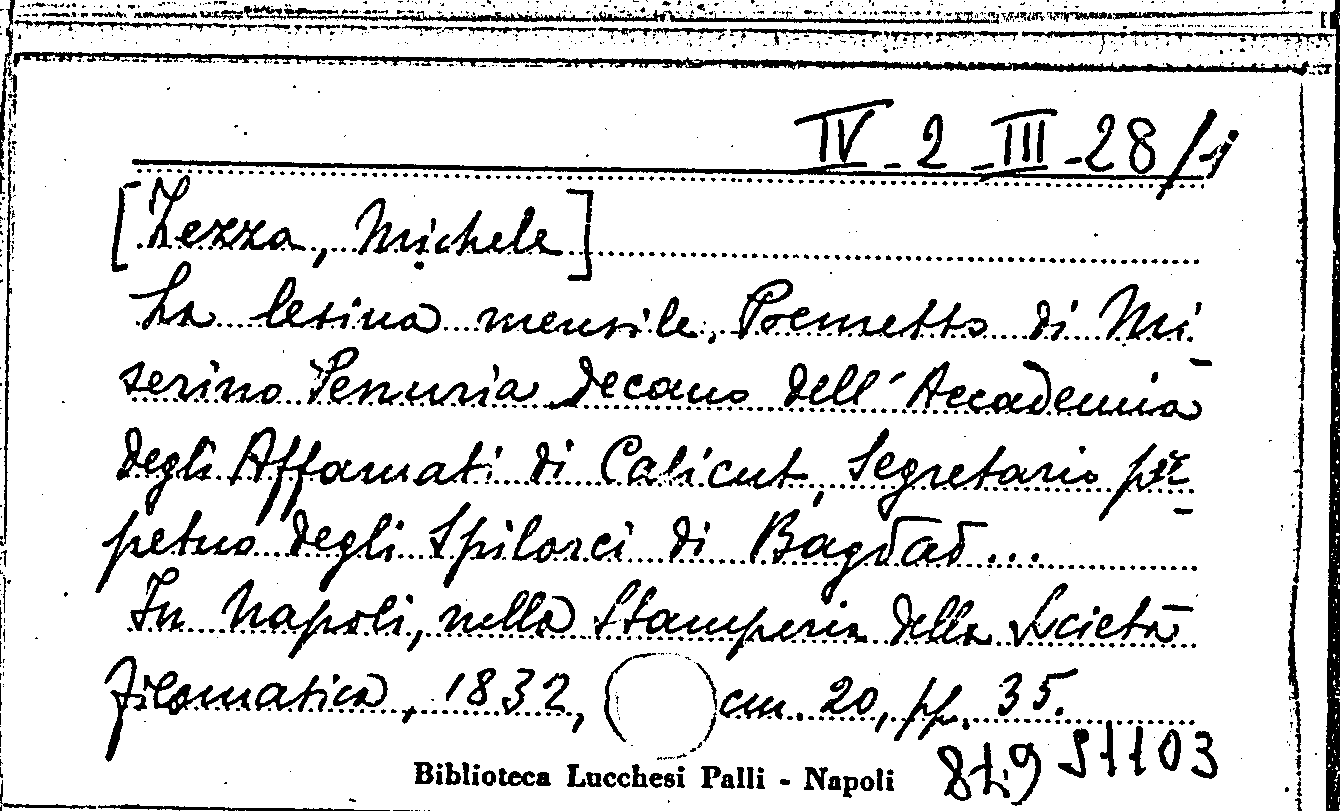 IV - 2 - III - 28/1
[Zezza, Michele]
La lesina mensile. Poemetto di Mi-
serino Penuria decano dell'Accademia
degli Affamati di Calicut, Segretario per-
petuo degli Spilorci di Bagdad...
In Napoli, nella Stamperia della Società
filomatica, 1832, cm. 20, pp. 35.
Biblioteca Lucchesi Palli - Napoli